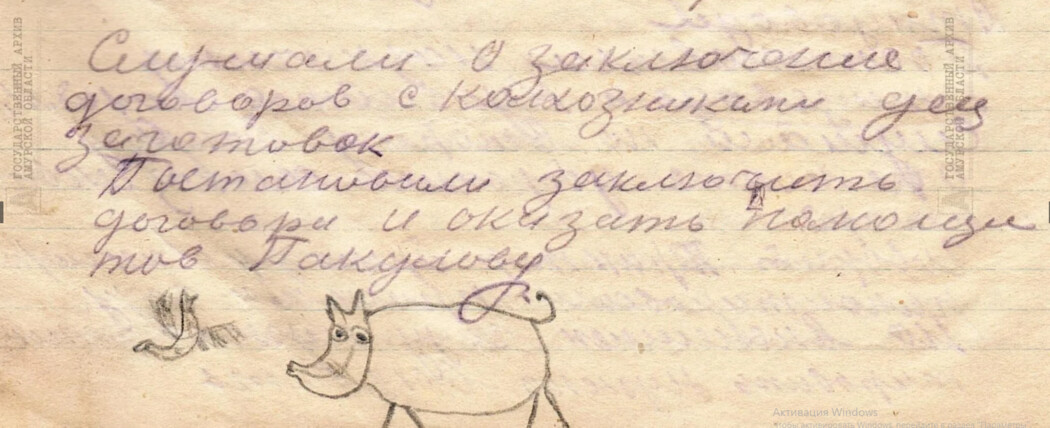 Слушали О заключение
договоров с колхозниками дец
заготовок
Постановили заключить
договора и оказать помощи
тов Пакулову
ГОСУДАРСТВЕННЫЙ АРХИВ
АМУРСКОЙ ОБЛАСТИ
ГОСУДАРСТВЕННЫЙ АРХИВ
АМУРСКОЙ ОБЛАСТИ
Активация Windows
Чтобы активировать Windows, перейдите в раздел "Параметры"